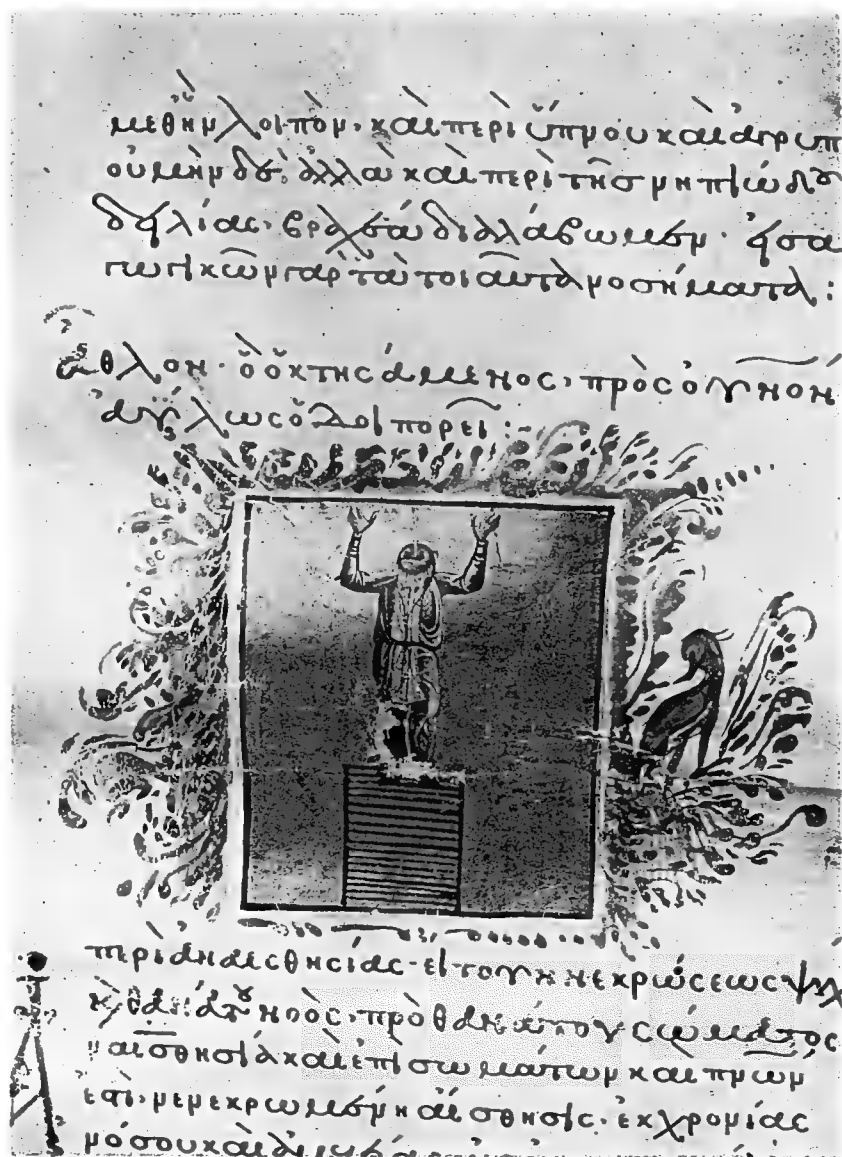 μεθὴν λοιπὸν· καὶ περὶ ὕπνου καὶ ἀγρυπ
οὐ μὴν δὲ, ἀλλὰ καὶ περὶ τῆς νηπιώδους
δειλίας· βραχέα διαλάβωμεν· εἰσα
γωγικῶν γὰρ τὰ τοιαῦτα νοσήματα:
ἆθλον· ὃ ὁ κτησάμενος, πρὸς οὐνὸν
ἀΰλως ὁδοιπορεῖ:
περὶ ἀναισθησίας· εἴτουν νεκρώσεως ψυχ
κ θανάτου νοὸς, πρὸ θανάτου σώματος
Ἀναισθησία καὶ ἐπὶ σωμάτων καὶ πνων
ἐστὶ· νενεκρωμένη αἴσθησις· ἐκ χρονίας
νόσου καὶ